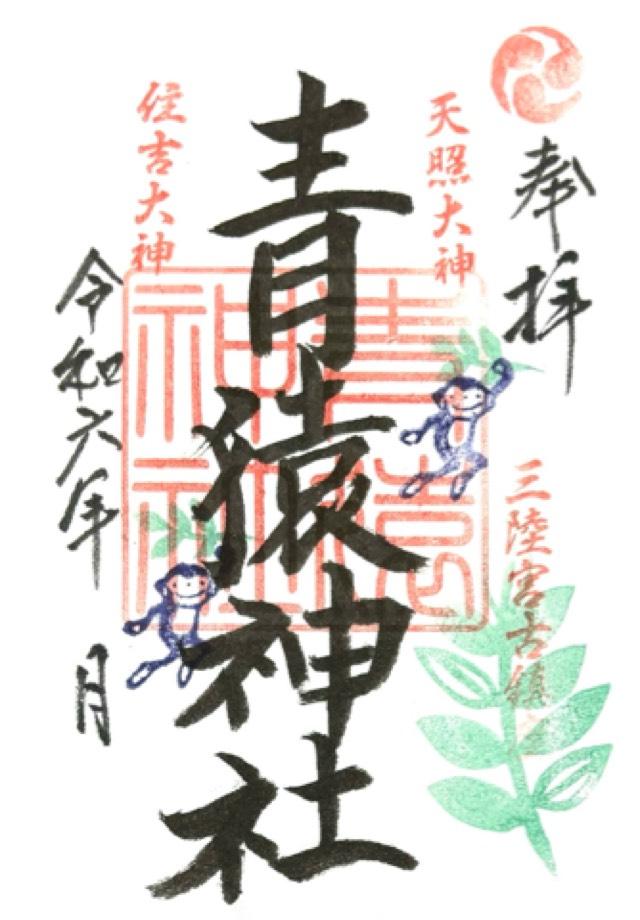 奉拝
三陸宮古鎮
天照大神
青猿神社
青猿神社
住吉大神
令和六年 月